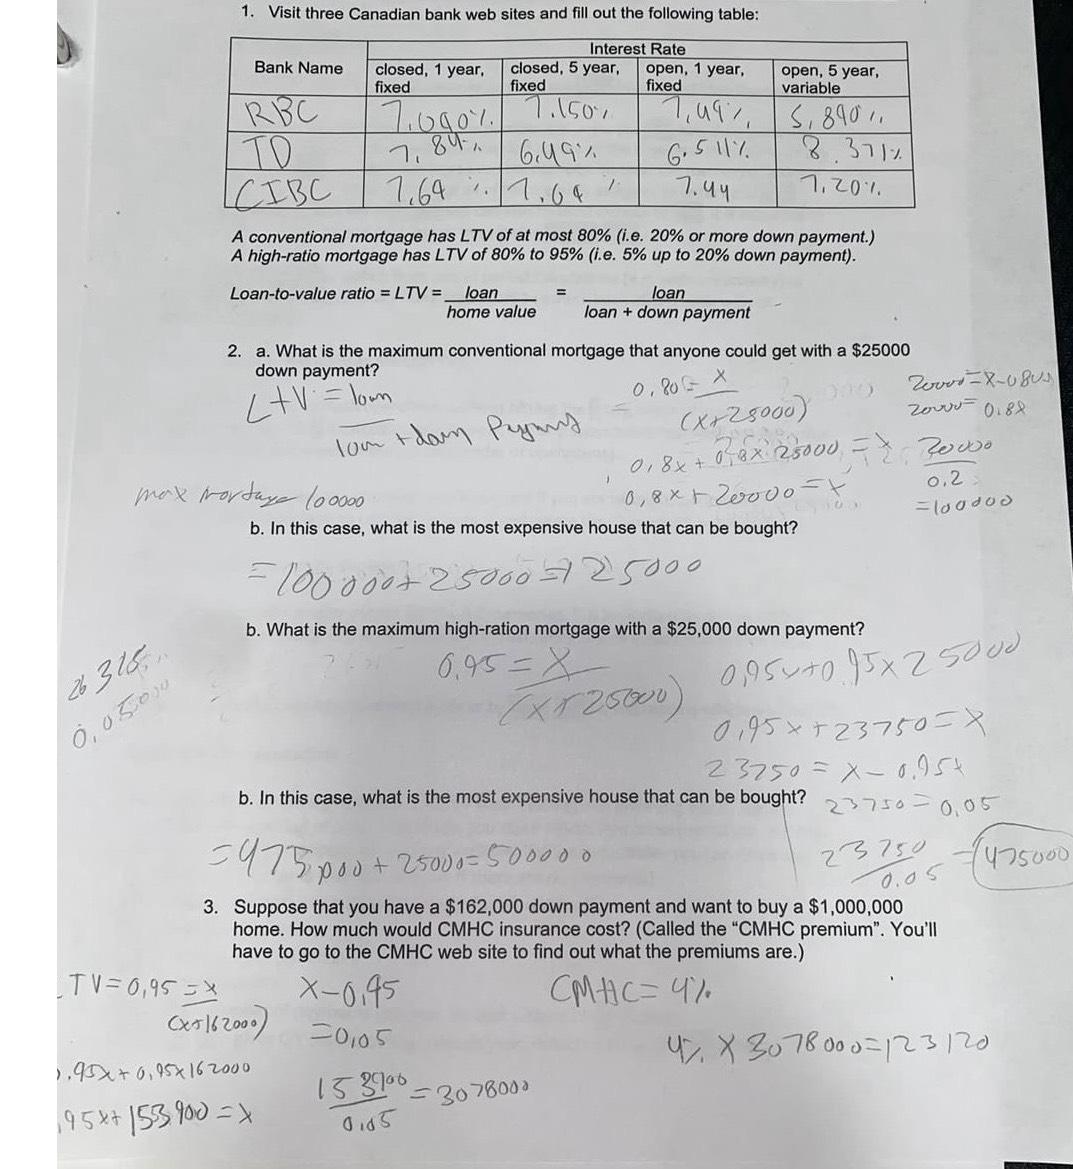 1. Visit three Canadian bank web sites and fill out the following table:
Bank Name
Interest Rate
closed, 1 year, fixed
closed, 5 year, fixed
open, 1 year, fixed
open, 5 year, variable
RBC 7.090% 7.150% 7.49% 5.890%
TD 7.84% 6.49% 6.511% 8.371%
CIBC 7.64 % 7.64 % 7.44 7.20%
A conventional mortgage has LTV of at most 80% (i.e. 20% or more down payment.)
A high-ratio mortgage has LTV of 80% to 95% (i.e. 5% up to 20% down payment).
Loan-to-value ratio = LTV = loan = loan
home value loan + down payment
2. a. What is the maximum conventional mortgage that anyone could get with a $25000
down payment?
LTV = loan
loan + down
= 0,80 = x
(x+25000)
0,8x + 0,8x 25000 = x
0,8x + 20000 = x
20000 = x-0.8
20000 = 0.8x
20000
0.2
=100000
max mortage 100000
b. In this case, what is the most expensive house that can be bought?
=100000+25000=125000
b. What is the maximum high-ration mortgage with a $25,000 down payment?
26 315
0.05
0,95 = x
(x+25000)
0,95 +0.95x25000
0,95x+23750=x
23750=x-0.95x
b. In this case, what is the most expensive house that can be bought?
23750=0,05
23750 = 475000
0.05
=475,000+25000=500000
3. Suppose that you have a $162,000 down payment and want to buy a $1,000,000
home. How much would CMHC insurance cost? (Called the “CMHC premium”. You'll
have to go to the CMHC web site to find out what the premiums are.)
TV=0,95=x
(x+162000)
.95x+0,95x162000
95x+153,900=x
x-0,95
=0,05
153900 = 3078000
0.05
CMHC=4%
4% x 3078000=123120